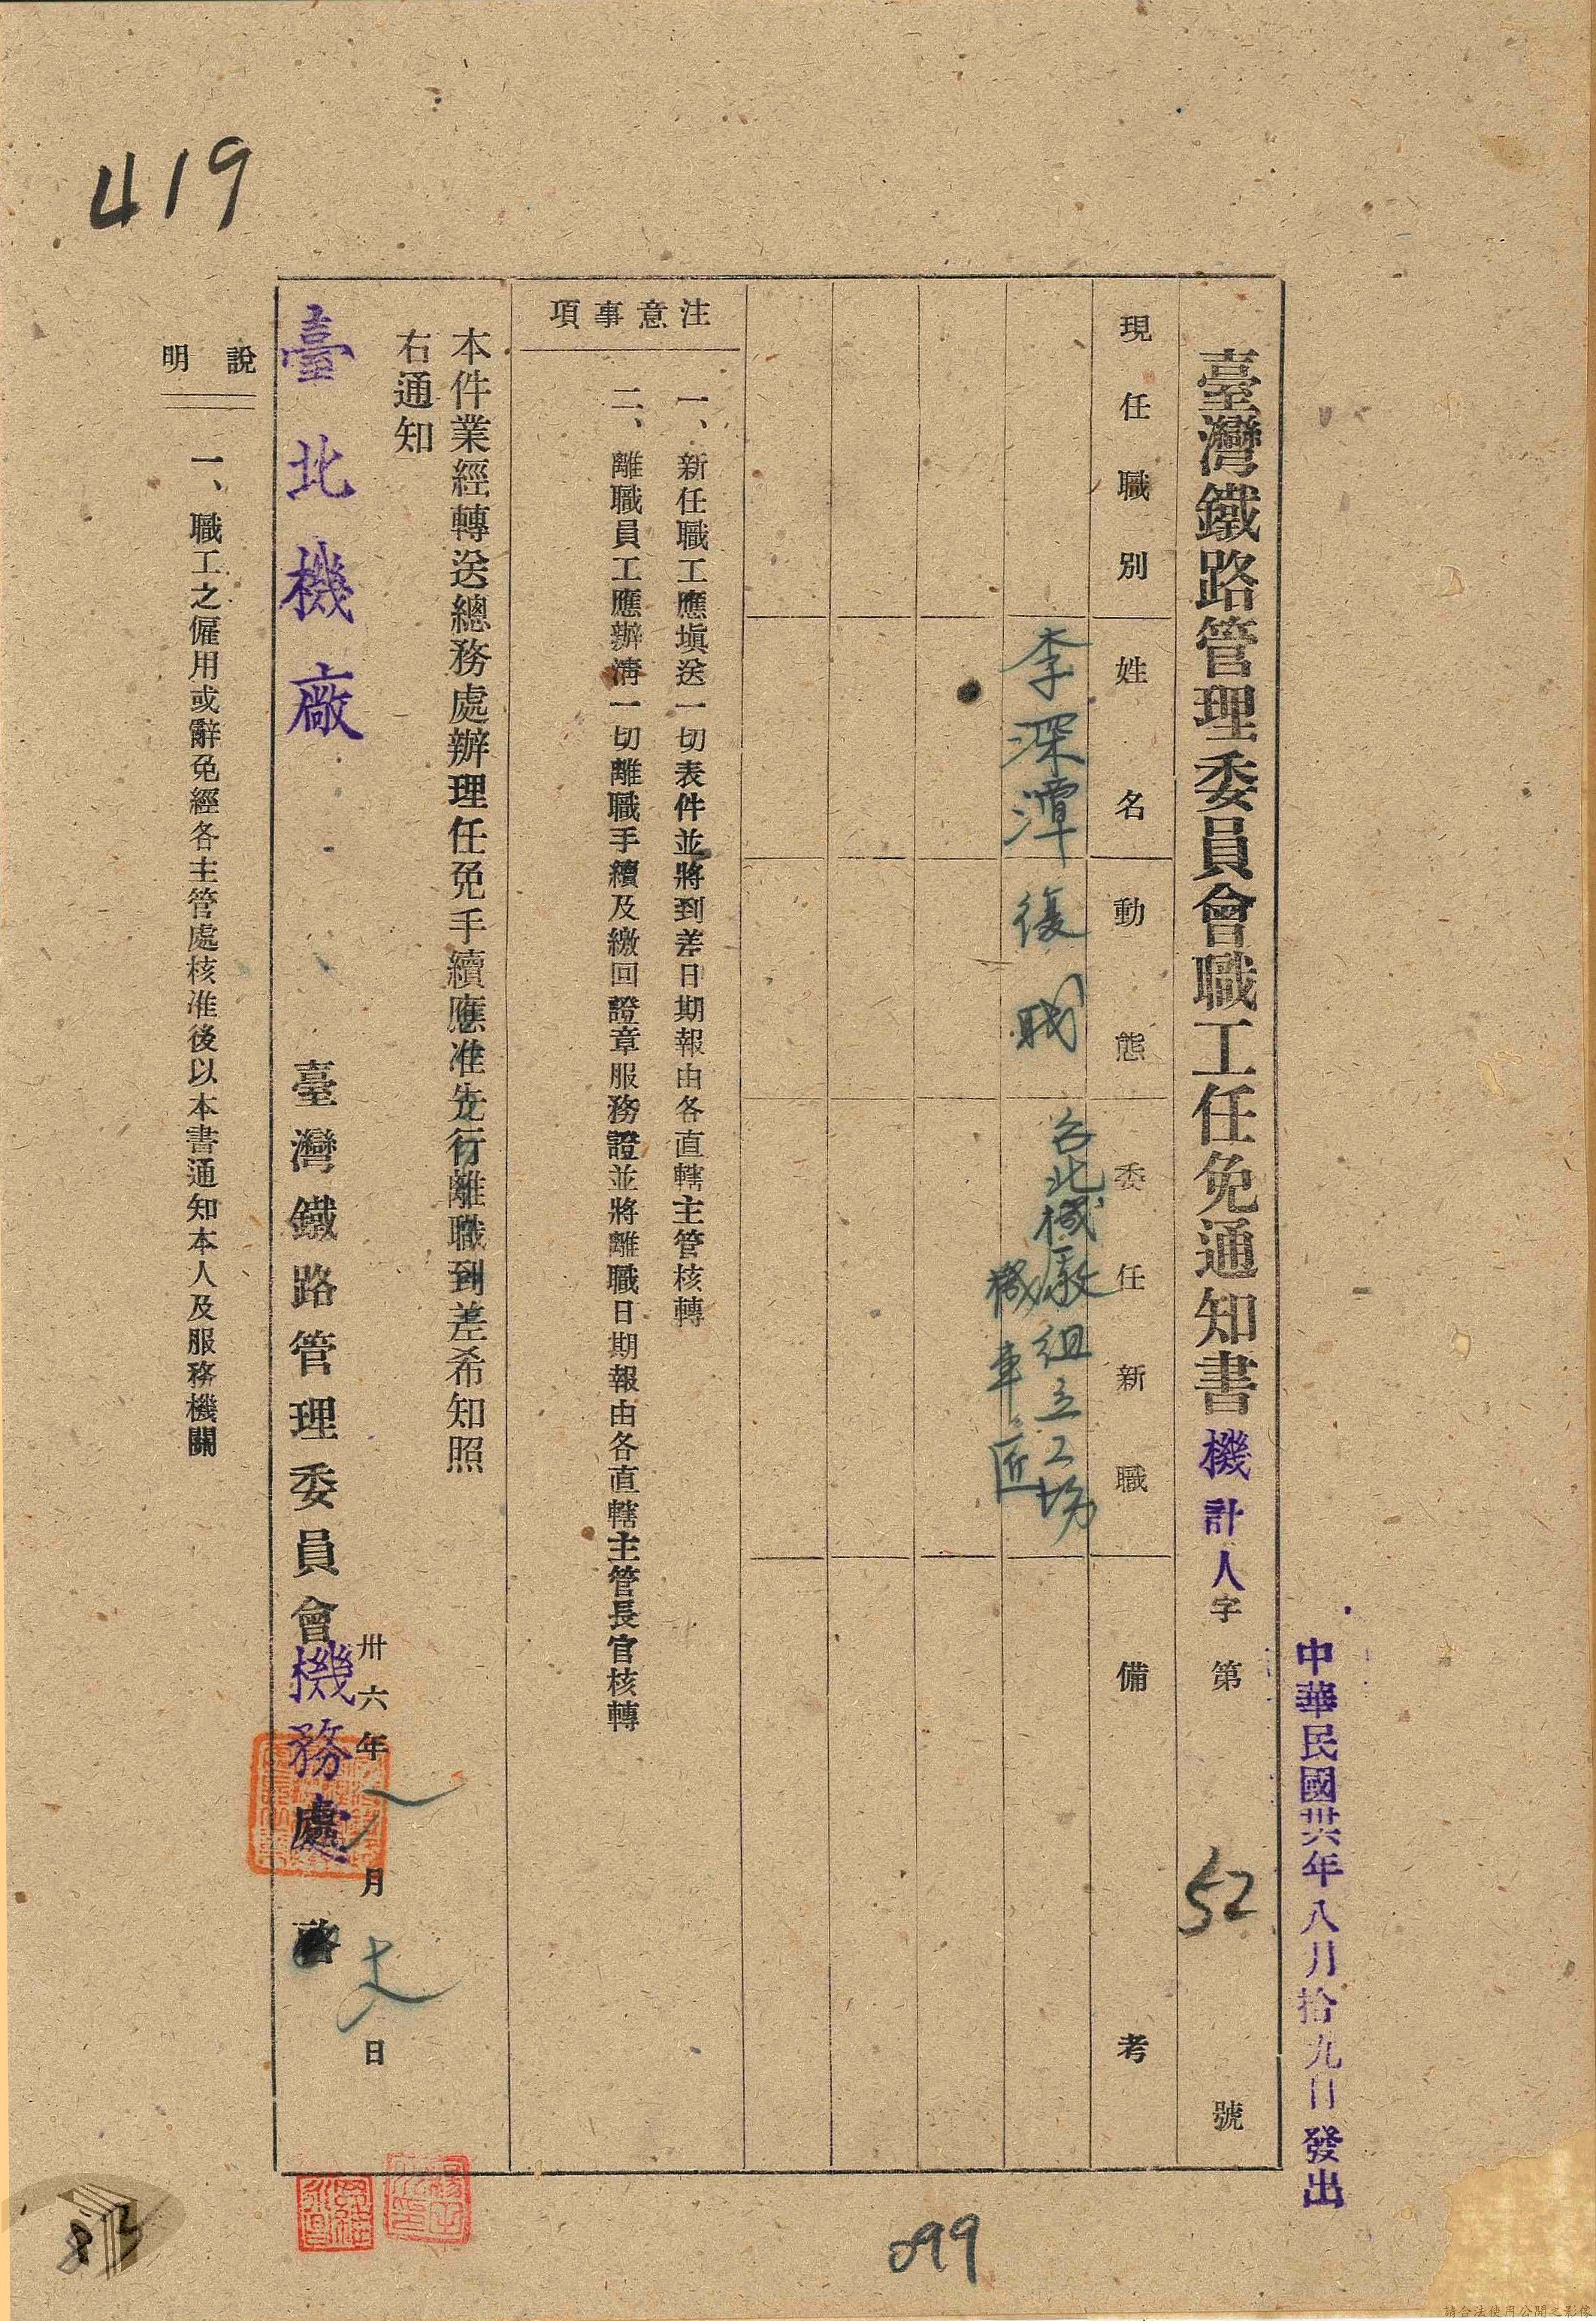 419
中華民國卅六年八月拾九日發出
臺灣鐵路管理委員會職工任免通知書 機計人字第52號
現任職別 姓名 動態 委任新職 備考
李深潭 復職 台北機廠組立工場
機車匠
注意事項
一、新任職工應塡送一切表件並將到差日期報由各直轄主管核轉
二、離職員工應辦淸一切離職手續及繳回證章服務證並將離職日期報由各直轄主管長官核轉
本件業經轉送總務處辦理任免手續應准先行離職到差希知照
右通知
卅六年八月 日
臺北機廠 臺灣鐵路管理委員會機務處啓
說明
一、職工之僱用或辭免經各主管處核准後以本書通知本人及服務機關
099
請合法使用公開之影像